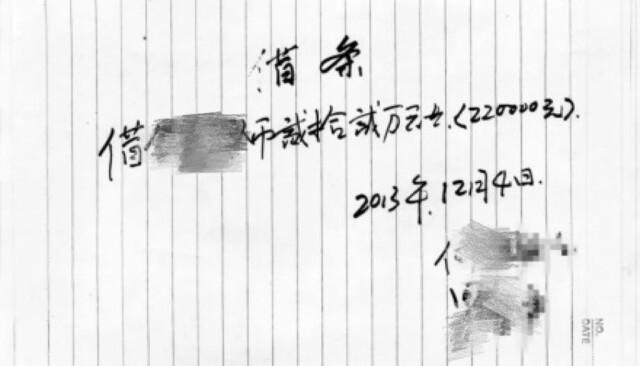 借条
借 币贰拾贰万元整.(220000元).
2013年.12月4日.
NO.
DATE